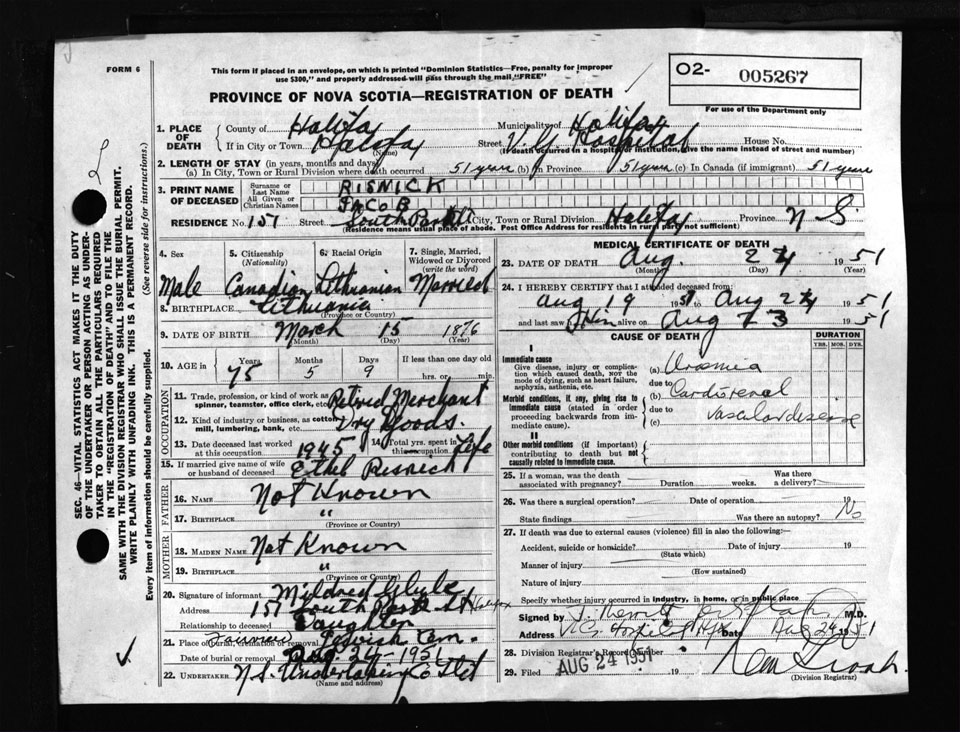 FORM 6
This form if placed in an envelope, on which is printed "Dominion Statistics—Free, penalty for improper
use $300," and properly addressed will pass through the mail "FREE"
O2- 005267
For use of the Department only
PROVINCE OF NOVA SCOTIA—REGISTRATION OF DEATH
1. PLACE OF DEATH
County of Halifax Municipality of Halifax
If in City or Town Halifax (Name) Street V. G. Hospital House No.
(If death occurred in a hospital or institution, give the name instead of street and number)
2. LENGTH OF STAY (in years, months and days)
(a) In City, Town or Rural Division where death occurred 51 years (b) In Province 51 years (c) In Canada (if immigrant) 51 years
3. PRINT NAME OF DECEASED
Surname or Last Name RISNICK
All Given or Christian Names JACOB
RESIDENCE No. 157 Street South Park St City, Town or Rural Division Halifax Province N S
(Residence means usual place of abode. Post Office Address for residents in rural part not sufficient)
4. Sex Male
5. Citizenship (Nationality) Canadian
6. Racial Origin Lithuanian
7. Single, Married, Widowed or Divorced (write the word) Married
8. BIRTHPLACE Lithuania
(Province or Country)
9. DATE OF BIRTH March 15 1876
(Month) (Day) (Year)
10. AGE in Years 75 Months 5 Days 9 If less than one day old hrs. or min.
OCCUPATION
11. Trade, profession, or kind of work as spinner, teamster, office clerk, etc. Retired Merchant
12. Kind of industry or business, as cotton mill, lumbering, bank, etc. Dry Goods.
13. Date deceased last worked at this occupation 1945
14. Total yrs. spent in this occupation Life
15. If married give name of wife or husband of deceased Ethel Resnick
FATHER
16. NAME Not Known
17. BIRTHPLACE "
(Province or Country)
MOTHER
18. MAIDEN NAME Not Known
19. BIRTHPLACE "
(Province or Country)
20. Signature of informant Mildred Glube
Address 157 South Park St Halifax
Relationship to deceased Daughter
21. Place of burial, cremation or removal Jewish Cem.
Date of burial or removal Aug. 24-1951
22. UNDERTAKER N S. Undertaking Co Ltd
(Name and address)
MEDICAL CERTIFICATE OF DEATH
23. DATE OF DEATH Aug. 24 1951
(Month) (Day) (Year)
24. I HEREBY CERTIFY that I attended deceased from:
Aug 19 1951 to Aug 24 1951
and last saw Him alive on Aug 23 1951
CAUSE OF DEATH
DURATION
YRS. MOS. DYS.
I
Immediate cause
Give disease, injury or complication which caused death, NOT the mode of dying, such as heart failure, asphyxia, asthenia, etc.
(a) Uraemia
due to
Morbid conditions, if any, giving rise to immediate cause (stated in order proceeding backwards from immediate cause).
(b) Cardiorenal
due to
(c) vascular disease
II
Other morbid conditions (if important) contributing to death but not causally related to immediate cause.
25. If a woman, was the death associated with pregnancy? Duration weeks. Was there a delivery?
26. Was there a surgical operation? Date of operation 19
State findings Was there an autopsy? No
27. If death was due to external causes (violence) fill in also the following:—
Accident, suicide or homicide? Date of injury 19
(State which)
Manner of injury
(How sustained)
Nature of injury
Specify whether injury occurred in industry, in home, or in public place
Signed by M.D.
Address V.G. Hospital Hfx Date Aug 24 1951
28. Division Registrar's Record Number
29. Filed AUG 24 1951 19
(Division Registrar)
SEC. 46—VITAL STATISTICS ACT MAKES IT THE DUTY
OF THE UNDERTAKER OR PERSON ACTING AS UNDER-
TAKER TO OBTAIN ALL THE PARTICULARS REQUIRED
IN THE "REGISTRATION OF DEATH" AND TO FILE THE
SAME WITH THE DIVISION REGISTRAR WHO SHALL ISSUE THE BURIAL PERMIT.
WRITE PLAINLY WITH UNFADING INK. THIS IS A PERMANENT RECORD.
Every item of information should be carefully supplied. (See reverse side for instructions.)